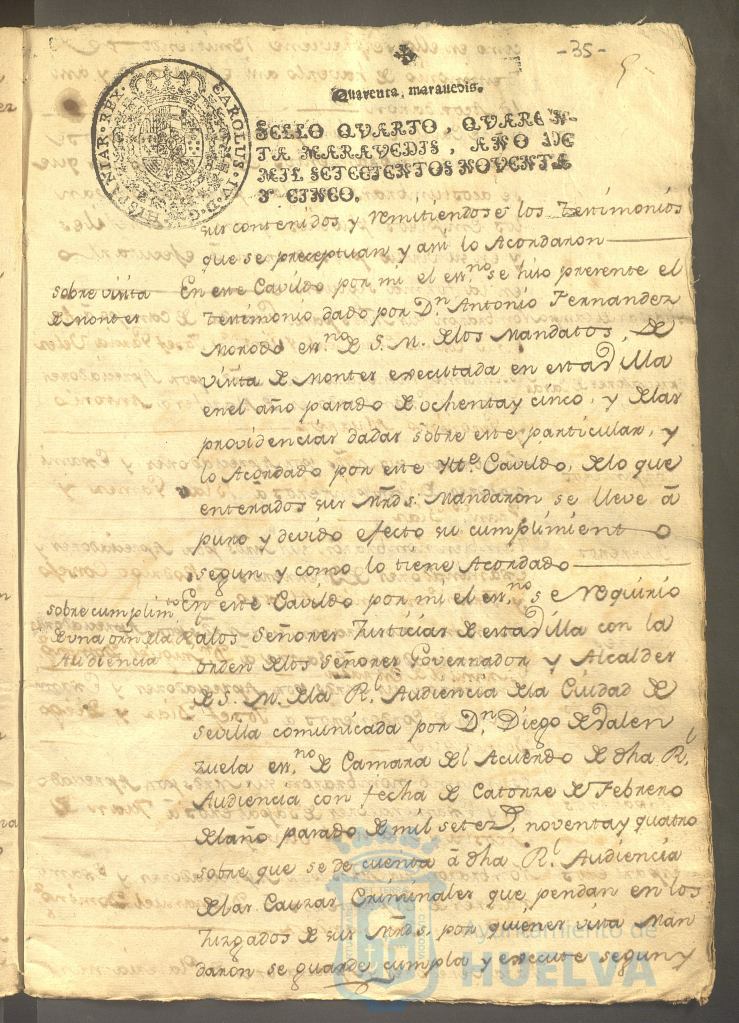 -35-
5
Quarenta, maravedis.
SELLO QVARTO, QVAREN-
TA MARAVEDIS, AÑO DE
MIL SETECIENTOS NOVENTA
Y CINCO.
CAROLUS·IV·D·G·HISPANIAR·REX·
sus contenidos y remitiendose los Testimonios
que se preceptuan y asi lo Acordaron
sobre visita
de Montes
En este Cavildo por mi el essno se hiso presente el
Testimonio dado por Dn. Antonio Fernandez
essno de S. M. de los Mandatos, de
visita de Montes executada en esta Villa
en el año pasado de ochenta y cinco, y de las
providencias dadas sobre este particular, y
lo Acordado por este Ytte. Cavildo, de lo que
enterados sus Mrds. Mandaron se lleve â
puro y devido efecto su cumplimiento
segun y como lo tiene Acordado
sobre cumplimto
de una orn de la Rl
Audiencia
En este Cavildo por mi el essno se requirio
a los Señores Justicias de esta Villa con la
orden de los Señores Governador y Alcaldes
de S. M. de la Rl. Audiencia de la Ciudad de
Sevilla comunicada por Dn. Diego de Valen
zuela essno de Camara del Acuerdo de dha Rl.
Audiencia con fecha de Catorze de Febrero
del año pasado de mil setezs. noventa y quatro
sobre que se de cuenta â dha Rl. Audiencia
de las Causas Criminales que pendan en los
Juzgados de sus Mrds. por quienes vista Man
daron se guarde cumpla y execute segun y
Ayuntamiento de
HUELVA